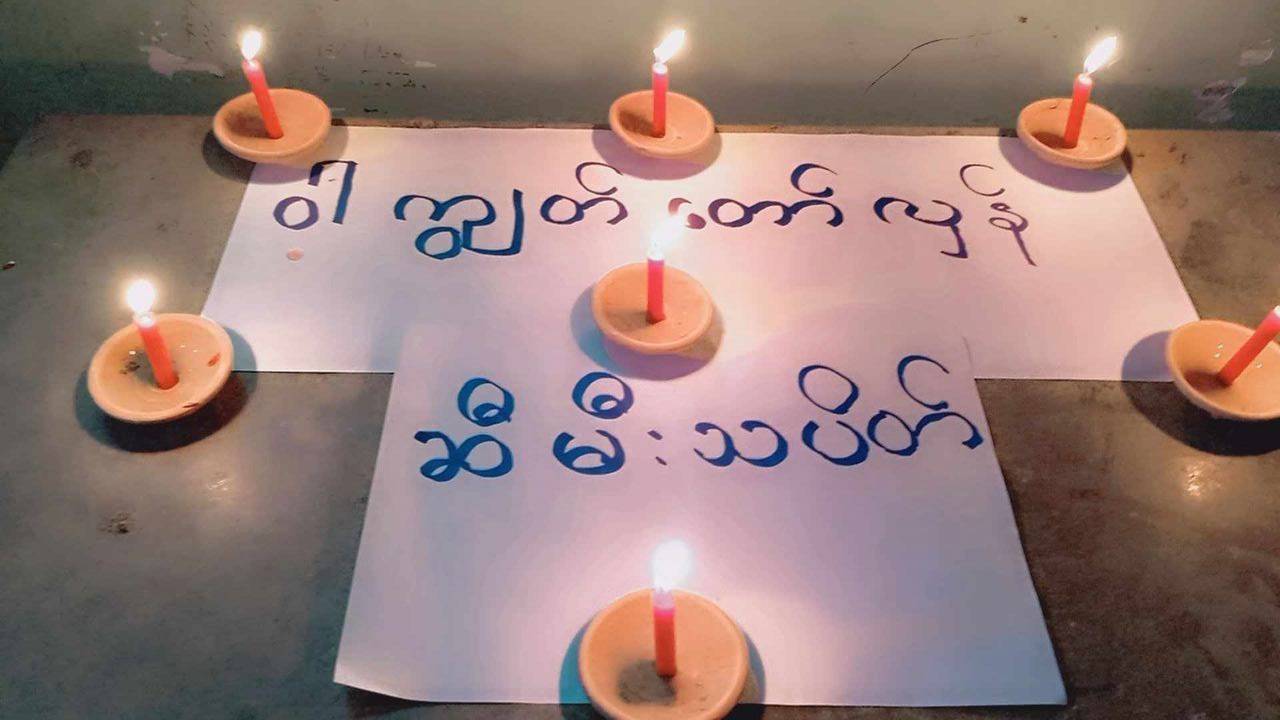 ဝါ ကျွတ် တော် လှန်
ဆီ မီးသပိတ်